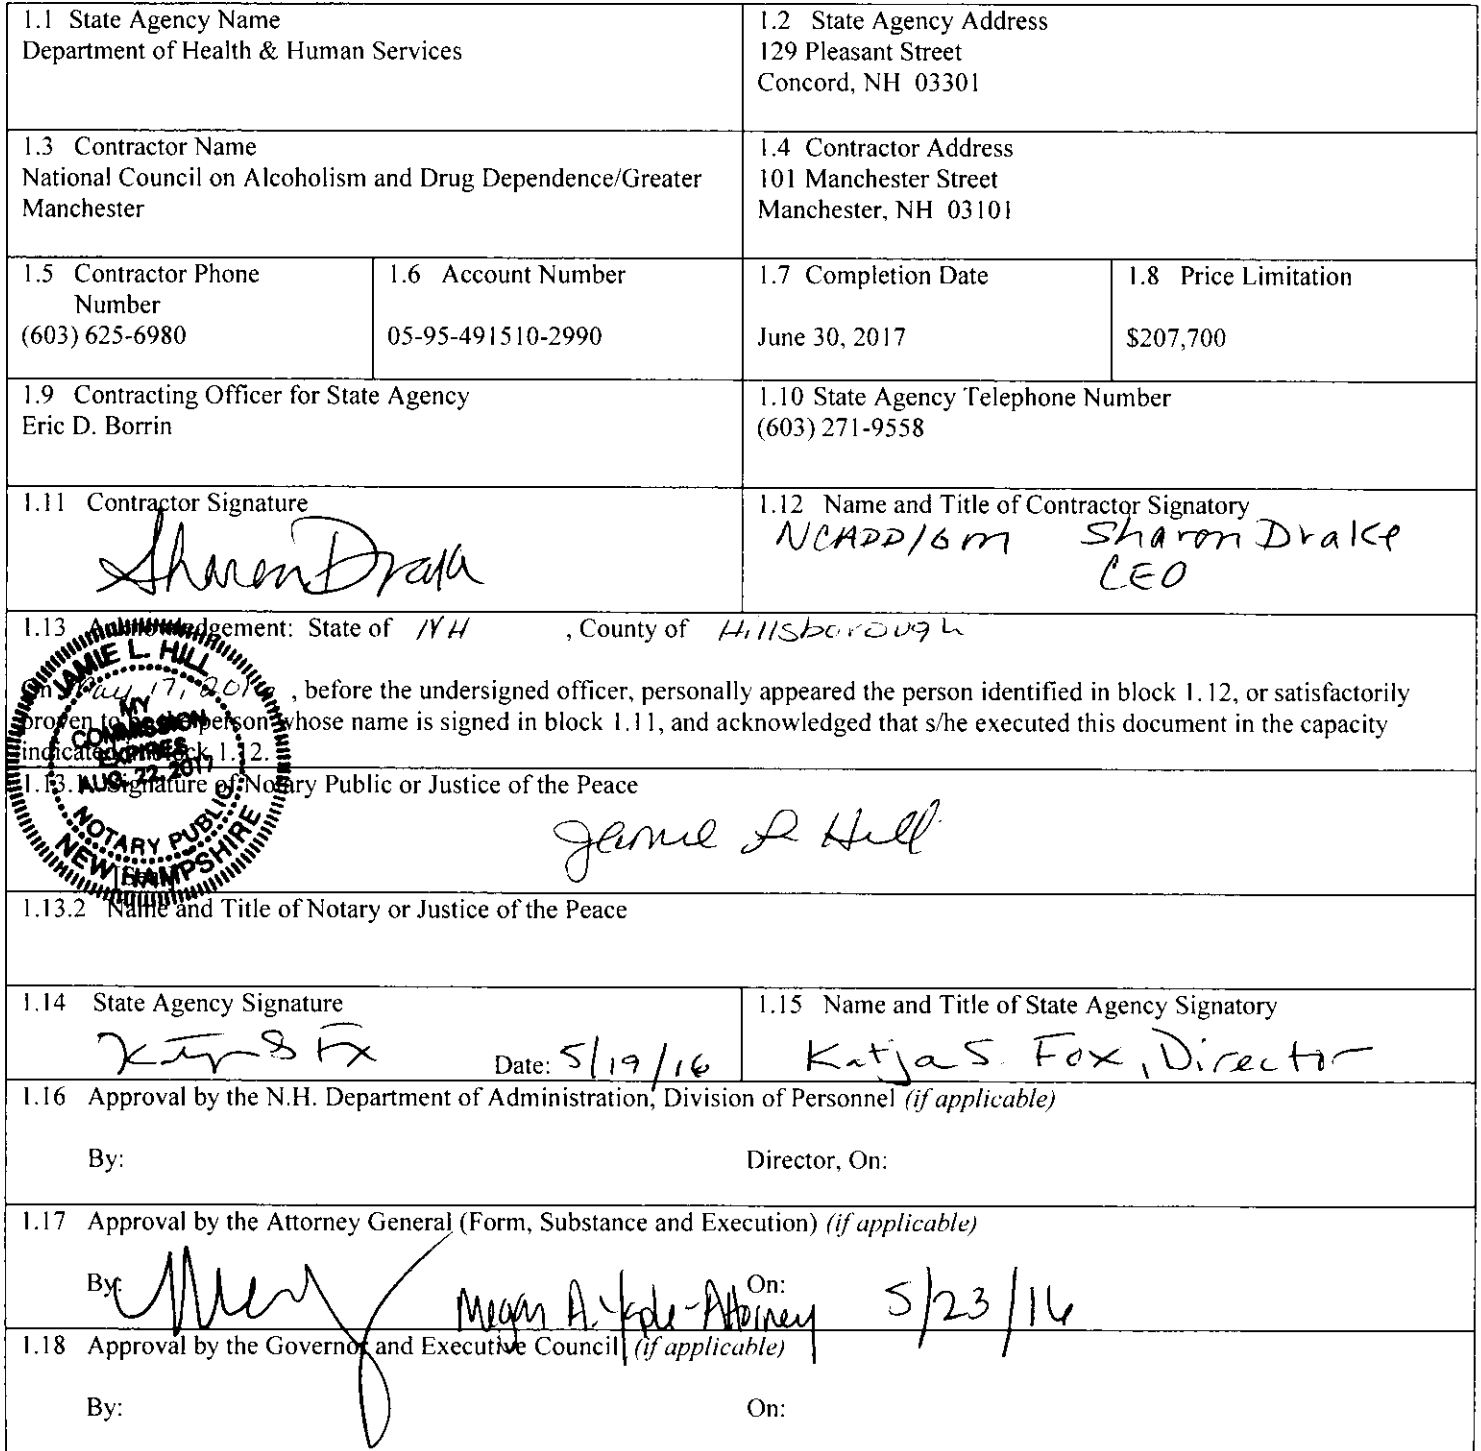 1.1 State Agency Name
Department of Health & Human Services
1.2 State Agency Address
129 Pleasant Street
Concord, NH 03301
1.3 Contractor Name
National Council on Alcoholism and Drug Dependence/Greater
Manchester
1.4 Contractor Address
101 Manchester Street
Manchester, NH 03101
1.5 Contractor Phone
Number
(603) 625-6980
1.6 Account Number
05-95-491510-2990
1.7 Completion Date
June 30, 2017
1.8 Price Limitation
$207,700
1.9 Contracting Officer for State Agency
Eric D. Borrin
1.10 State Agency Telephone Number
(603) 271-9558
1.11 Contractor Signature
Sharon Drake
1.12 Name and Title of Contractor Signatory
NCADD/GM Sharon Drake
CEO
1.13 Acknowledgement: State of NH , County of Hillsborough
On May 17, , before the undersigned officer, personally appeared the person identified in block 1.12, or satisfactorily
proven to be the person whose name is signed in block 1.11, and acknowledged that s/he executed this document in the capacity
indicated in block 1.12.
JAMIE L. HILL
MY
COMMISSION
EXPIRES
AUG. 22, 2017
NOTARY PUBLIC
NEW HAMPSHIRE
1.13.1 Signature of Notary Public or Justice of the Peace
Jamie L Hill
[Seal]
1.13.2 Name and Title of Notary or Justice of the Peace
1.14 State Agency Signature
Date: 5/19/16
1.15 Name and Title of State Agency Signatory
Katja S. Fox, Director
1.16 Approval by the N.H. Department of Administration, Division of Personnel (if applicable)
By: Director, On:
1.17 Approval by the Attorney General (Form, Substance and Execution) (if applicable)
By: Megan A. -Attorney On: 5/23/16
1.18 Approval by the Governor and Executive Council (if applicable)
By: On: